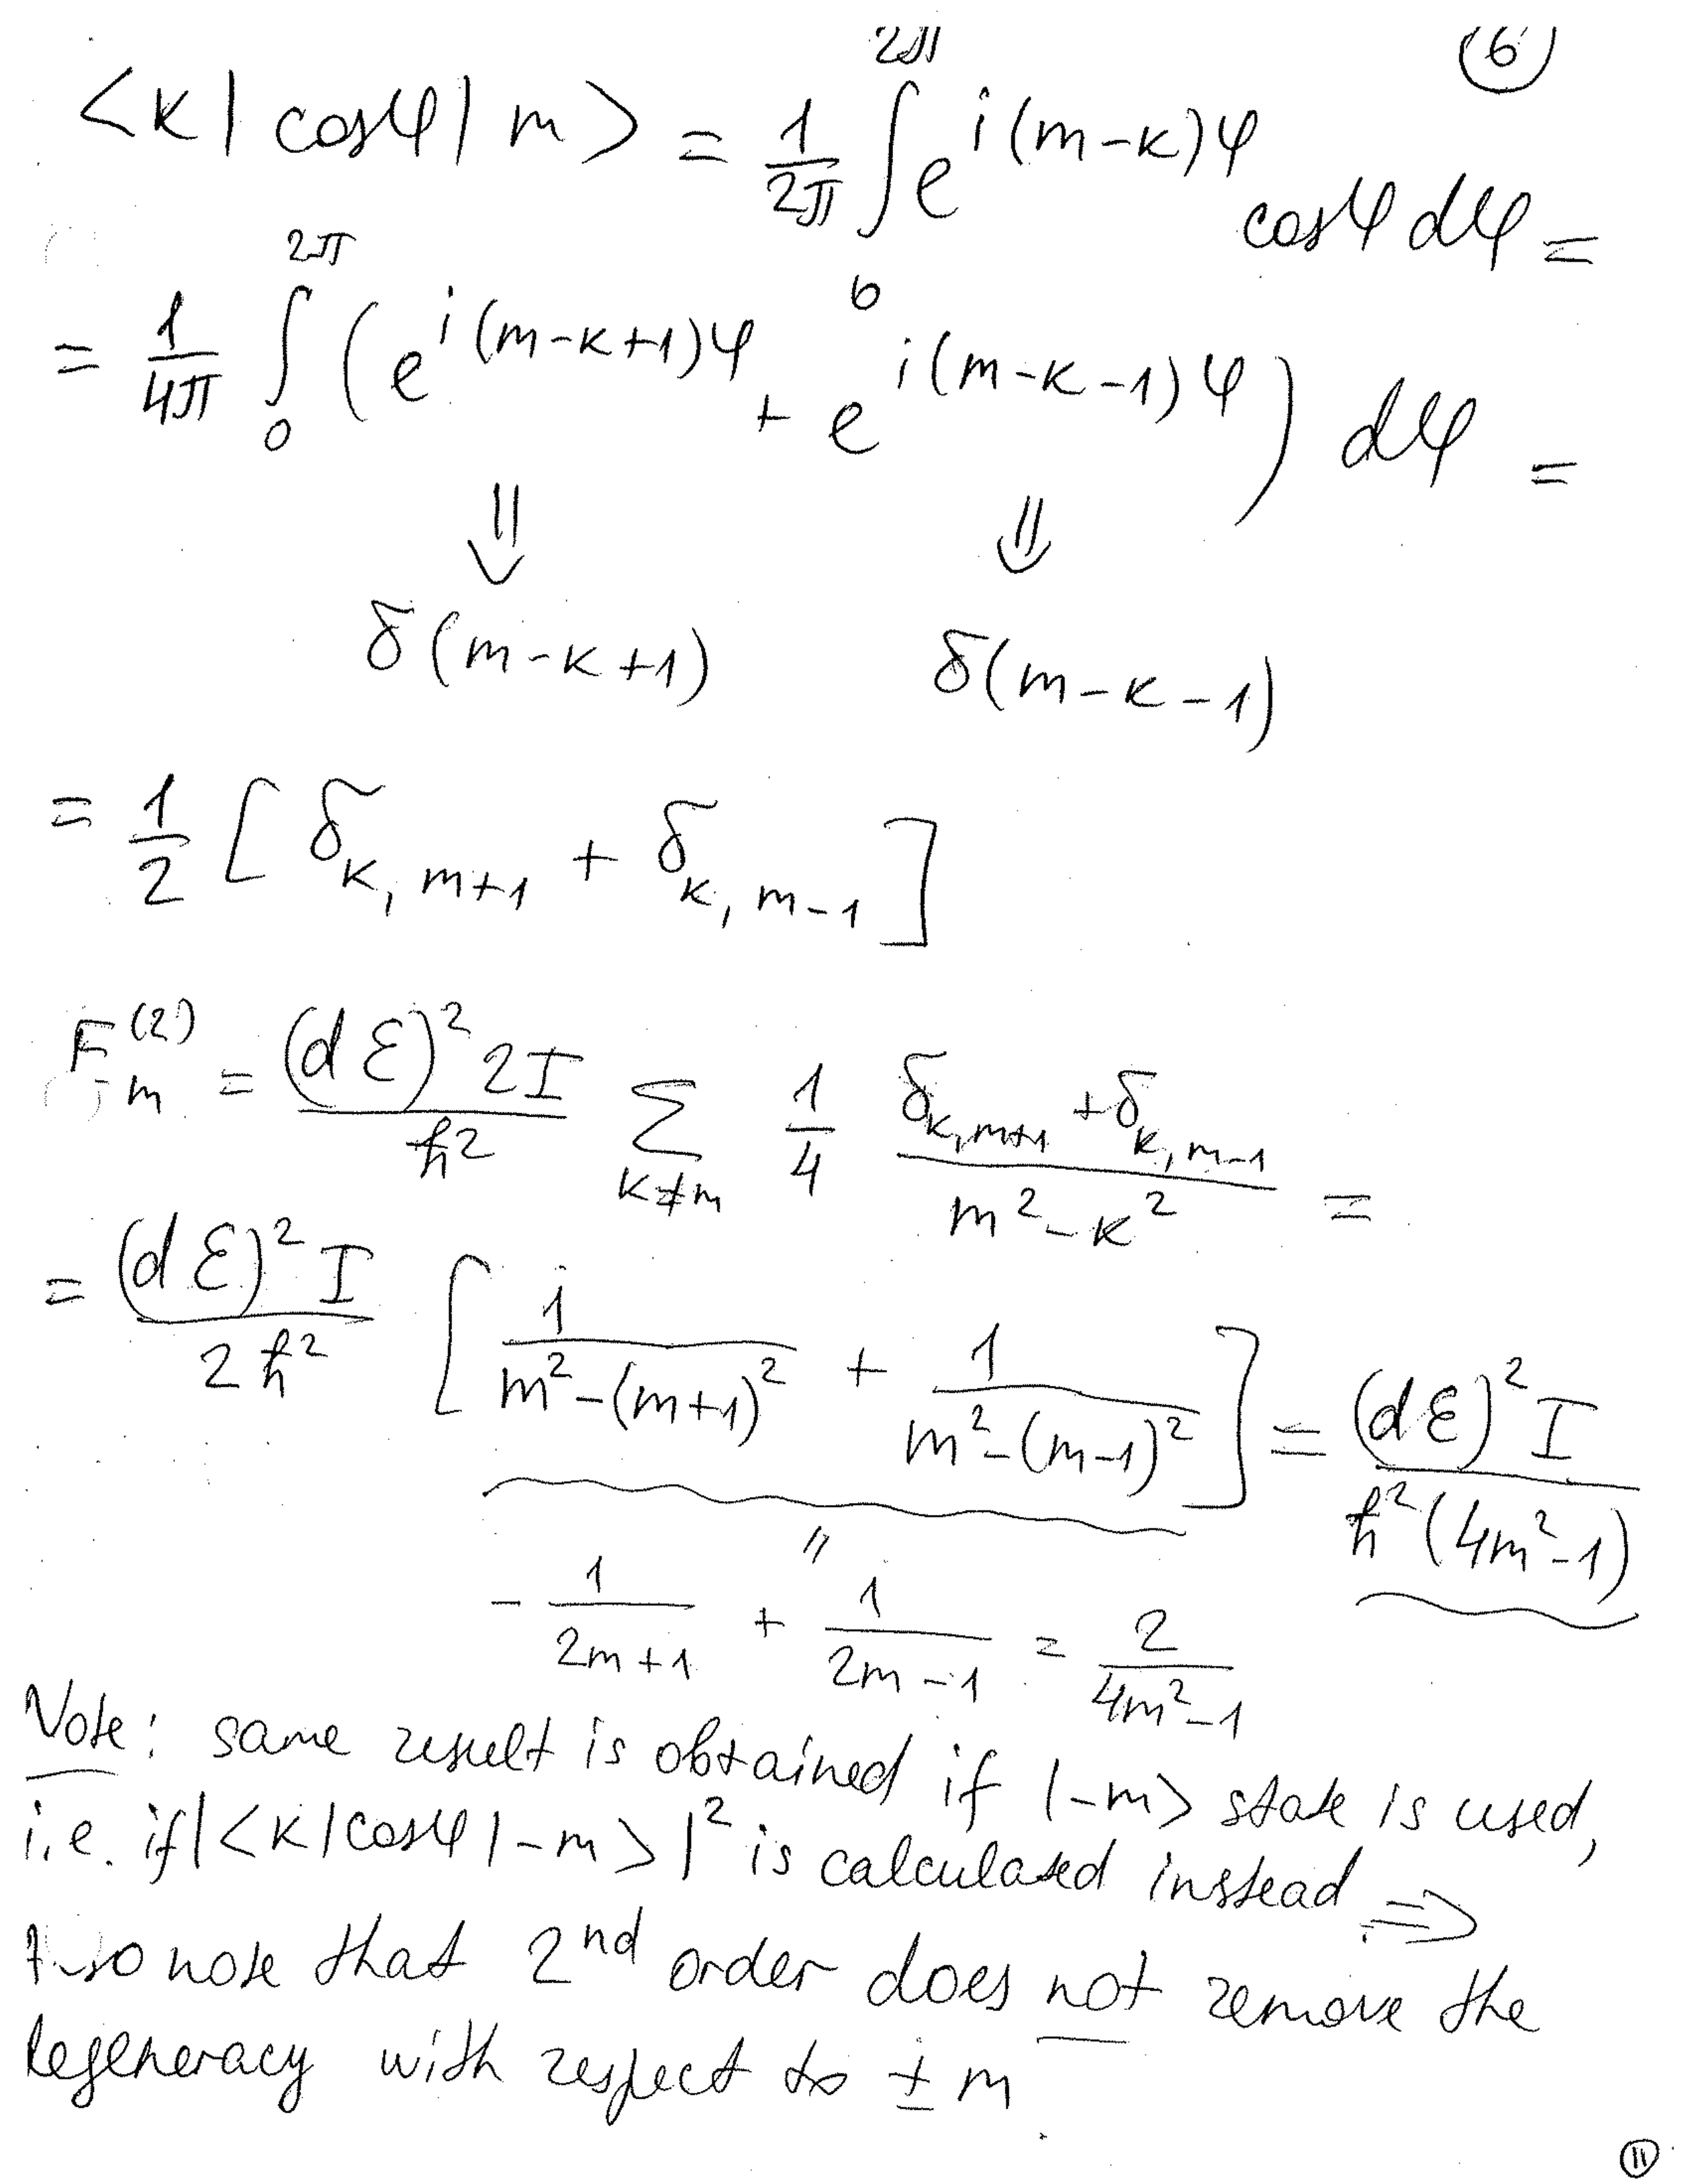 (6)
<k| cosφ | m> = 1/2π ∫₀^2π e^{i(m-k)φ} cosφ dφ =
= 1/4π ∫₀^2π (e^{i(m-k+1)φ} + e^{i(m-k-1)φ}) dφ =
⇓ ⇓
δ(m-k+1) δ(m-k-1)
= 1/2 [δ_{k, m+1} + δ_{k, m-1}]
E_m^{(2)} = (dℰ)² 2I / ħ² Σ_{k≠m} 1/4 (δ_{k,m+1} + δ_{k,m-1}) / (m² - k²) =
= (dℰ)² I / 2ħ² [1/(m²-(m+1)²) + 1/(m²-(m-1)²)] = (dℰ)² I / ħ²(4m²-1)
"
- 1/(2m+1) + 1/(2m-1) = 2/(4m²-1)
Note: same result is obtained if |-m> state is used,
i.e. if |<k|cosφ|-m>|² is calculated instead ⇒
note that 2nd order does not remove the
degeneracy with respect to ± m
11